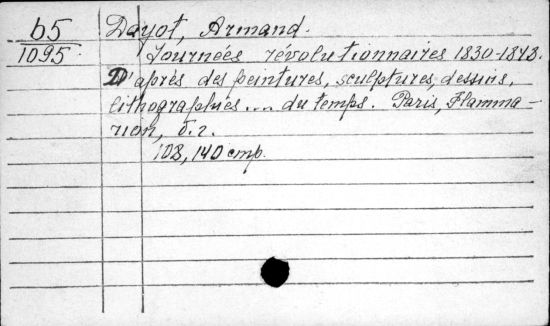 b5 Dayot, Armand.
1095 Journées révolutionnaires 1830-1848.
D'après des peintures, sculptures, dessins,
lithographies .... du temps. Paris, Flamma-
rion, б.г.
108, 140 cmp.